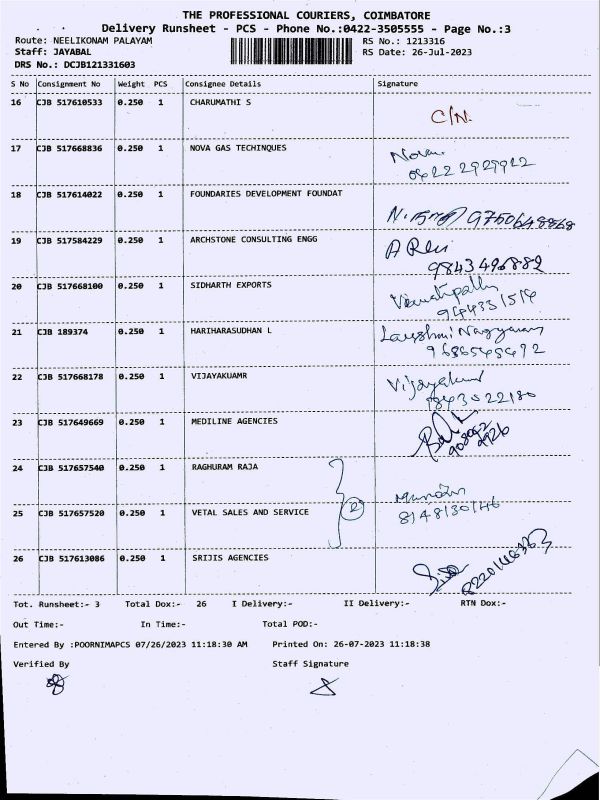 THE PROFESSIONAL COURIERS, COIMBATORE
Delivery Runsheet - PCS - Phone No.:0422-3505555 - Page No.:3
Route: NEELIKONAM PALAYAM RS No.: 1213316
Staff: JAYABAL RS Date: 26-Jul-2023
DRS No.: DCJB121331603
S No Consignment No Weight PCS Consignee Details Signature
16 CJB 517610533 0.250 1 CHARUMATHI S C/N.
17 CJB 517668836 0.250 1 NOVA GAS TECHINQUES Nova
0422 2929922
18 CJB 517614022 0.250 1 FOUNDARIES DEVELOPMENT FOUNDAT
9750648868
19 CJB 517584229 0.250 1 ARCHSTONE CONSULTING ENGG
9843496882
20 CJB 517668100 0.250 1 SIDHARTH EXPORTS
21 CJB 189374 0.250 1 HARIHARASUDHAN L
22 CJB 517668178 0.250 1 VIJAYAKUAMR
23 CJB 517649669 0.250 1 MEDILINE AGENCIES
24 CJB 517657540 0.250 1 RAGHURAM RAJA
25 CJB 517657520 0.250 1 VETAL SALES AND SERVICE 2
8148130146
26 CJB 517613086 0.250 1 SRIJIS AGENCIES
Tot. Runsheet:- 3 Total Dox:- 26 I Delivery:- II Delivery:- RTN Dox:-
Out Time:- In Time:- Total POD:-
Entered By :POORNIMAPCS 07/26/2023 11:18:30 AM Printed On: 26-07-2023 11:18:38
Verified By Staff Signature